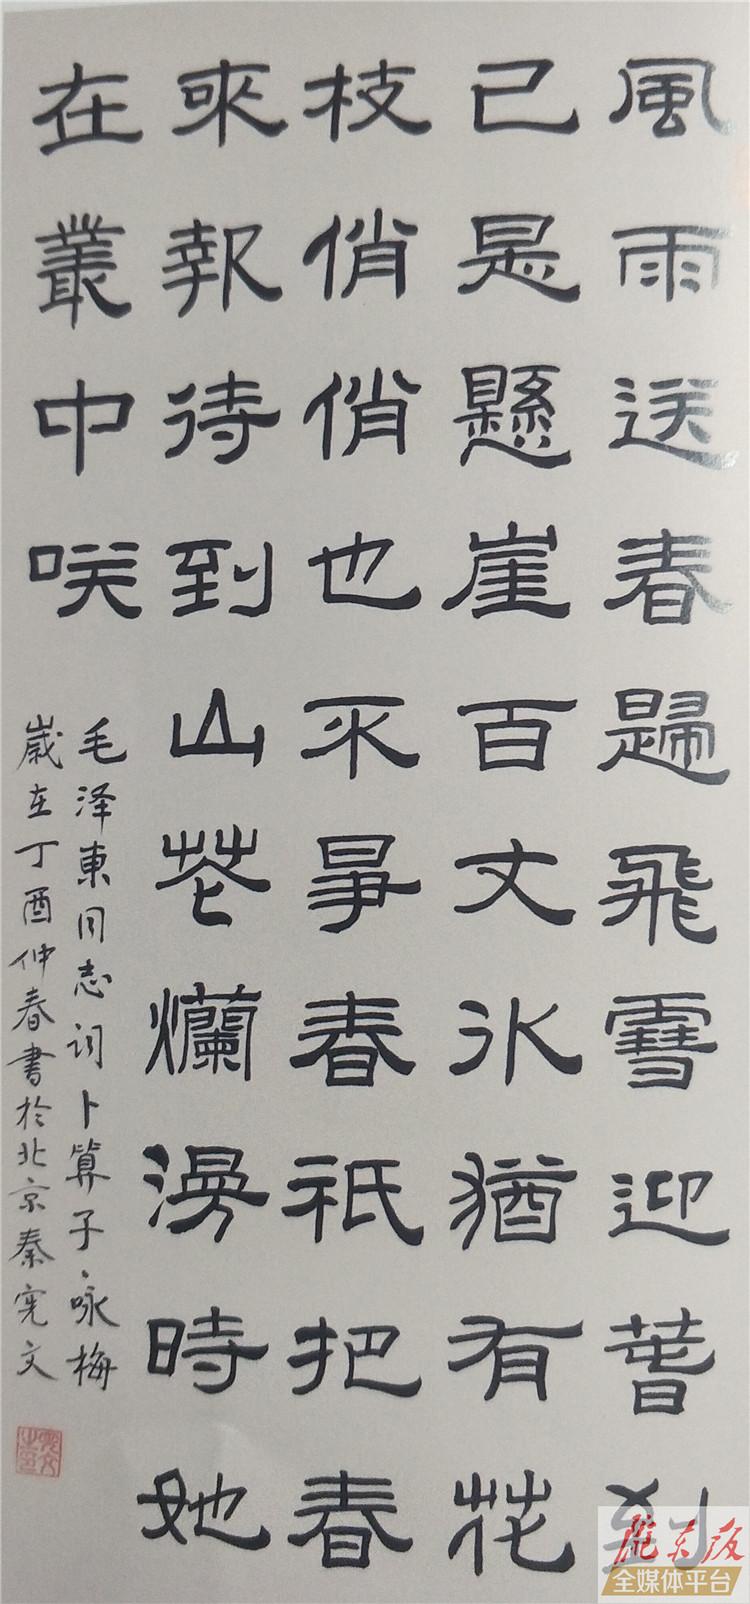 風雨送春歸飛雪迎春到
已是懸崖百丈冰猶有花
枝俏俏也不爭春祇把春
來報待到山花爛漫時她
在叢中咲
毛泽東同志詞卜算子·咏梅
歲在丁酉仲春書於北京秦宪文
陇东报
全媒体平台